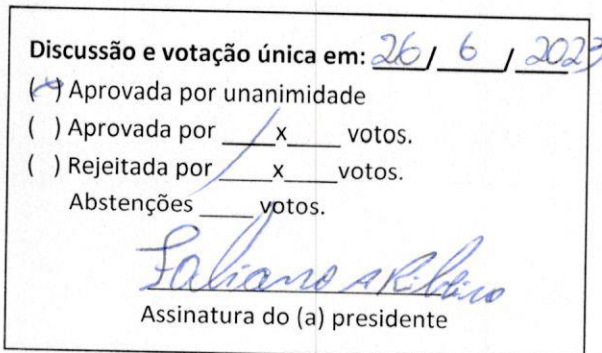 Discussão e votação única em: 26 / 6 / 2023
(x) Aprovada por unanimidade
( ) Aprovada por ____x____ votos.
( ) Rejeitada por ____x____votos.
Abstenções ____ votos.
Fabiano A Ribeiro
Assinatura do (a) presidente